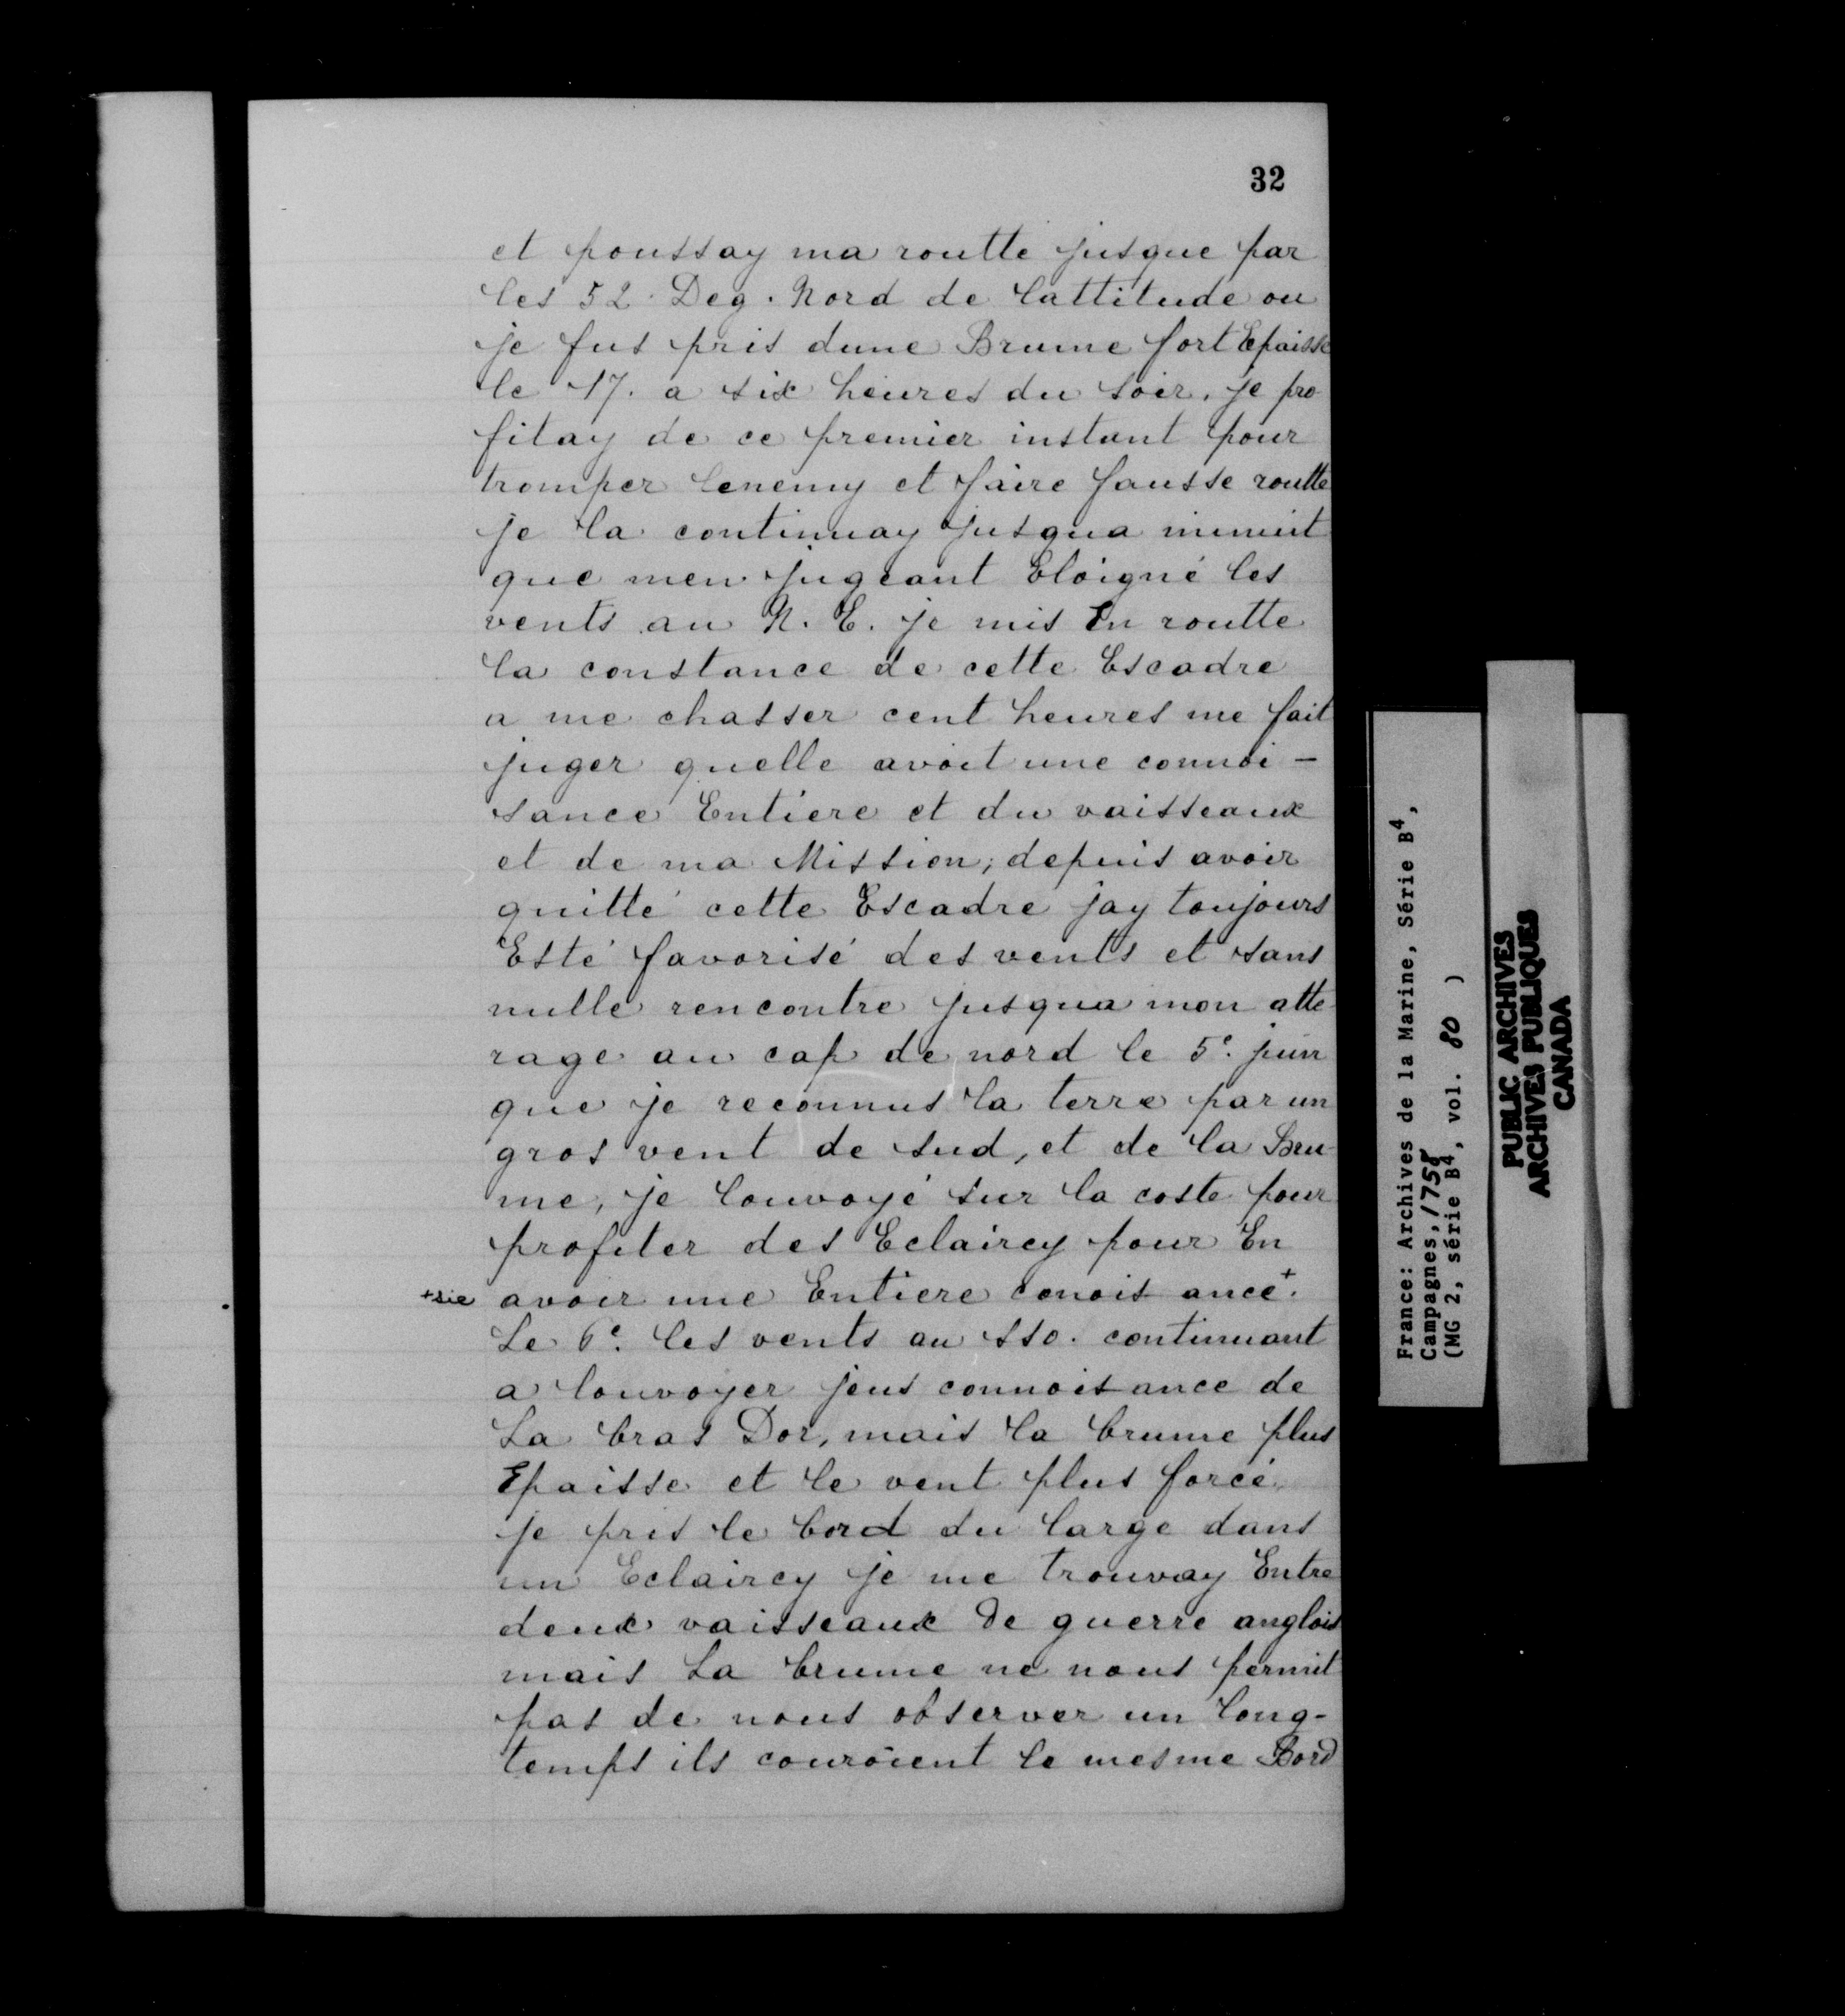 32
et poussay ma routte jusque par
les 52. Deg. Nord de lattitude ou
je fus pris dune Brume fort Epaisse
le 17. a six heures du soir. je pro
fitay de ce premier instant pour
tromper lenemy et faire fausse routte
je la continuay jusqua minuit
que men jugeant Eloigné les
vents au N. E. je mis En routte
la constance de cette Escadre
a me chasser cent heures me fait
juger quelle avoit une connoi-
sance Entiere et du vaisseaux
et de ma Mission; depuis avoir
quitté cette Escadre jay toujours
Esté favorisé des vents et sans
nulle rencontre jusqua mon atte
rage au cap de nord le 5e. juin
que je reconnus la terre par un
gros vent de sud, et de la Bru-
me, je louvoyé sur la coste pour
profiter des Eclaircy pour En
+sic avoir une Entiere conois ance+.
Le 6e. les vents au sso. continuant
a louvoyer jeus connoisance de
La bras Dor, mais la brume plus
Epaisse et le vent plus forcé
je pris le bord du large dans
un Eclaircy je me trouvay Entre
deux vaisseaux de guerre anglois
mais La brume ne nous permit
pas de nous observer un long-
temps ils couroient le mesme Bord
France: Archives de la Marine, Série B4,
Campagnes, 1758
(MG 2, série B4, vol. 80 )
PUBLIC ARCHIVES
ARCHIVES PUBLIQUES
CANADA